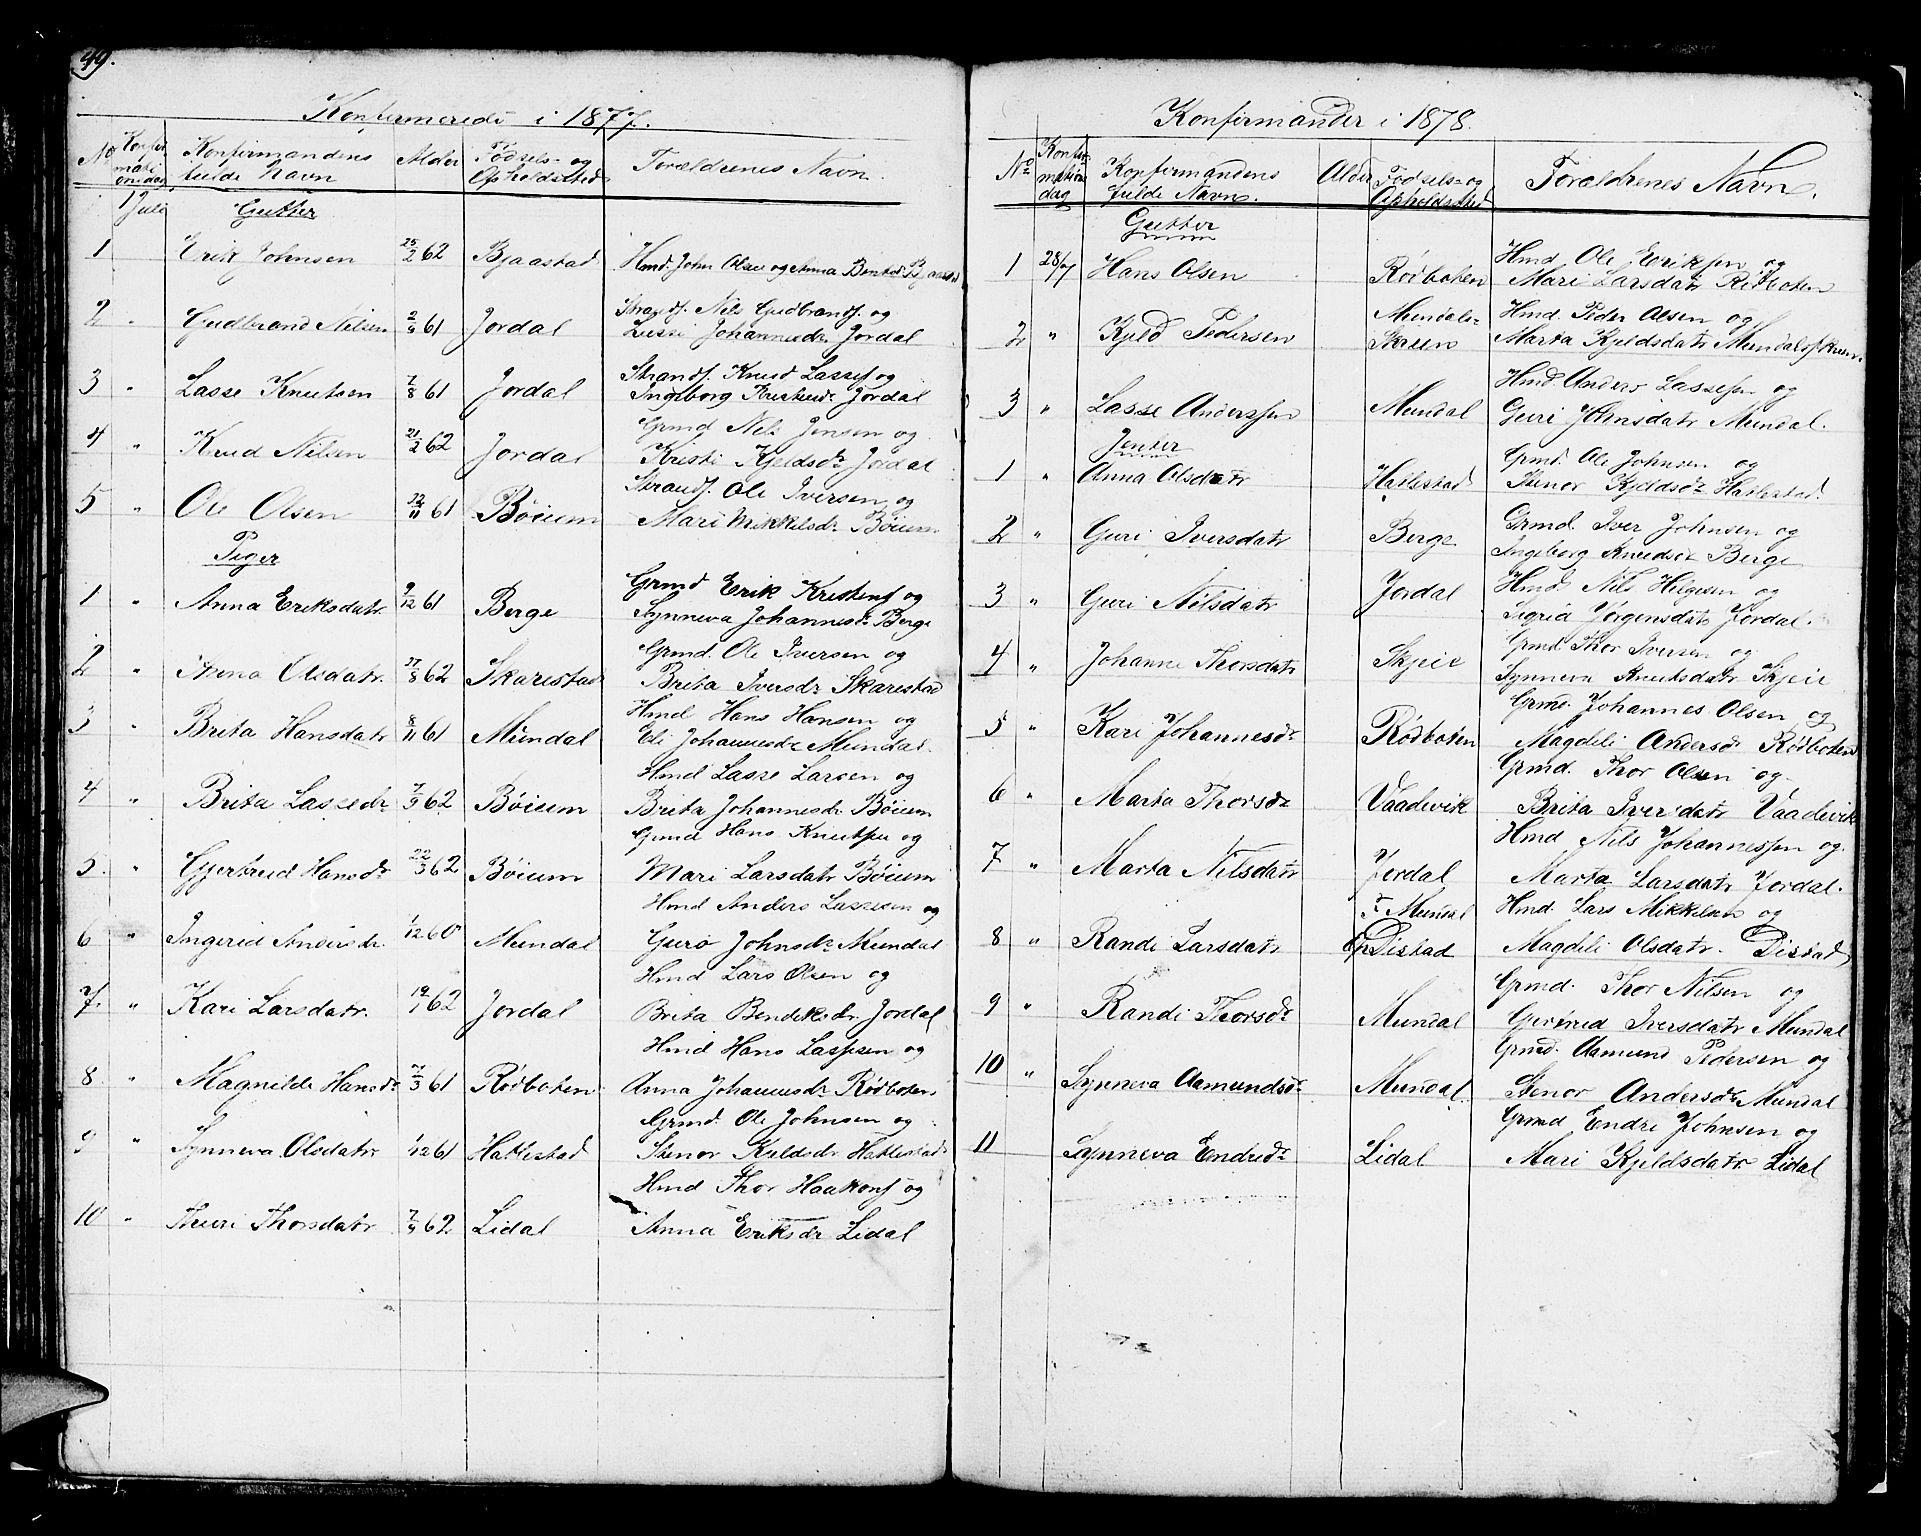 49.
Konfirmerede i 1877.
No Konfirmationsdag Konfirmandens fulde Navn Alder Fødsels- og Opholdssted Forældrenes Navn
1 Juli Gutter
1 Erik Johnsen 25/2 62 Bjaastad Hmd. John Olsen og Anna Bentsd. Bjaastad
2 " Gudbrand Nilsen 2/9 61 Jordal Strands. Nils Gudbrands. og
Lussi Johannesdr Jordal
3 " Lasse Knutsen 7/8 61 Jordal Strands. Knud Lasses. og
Ingeborg Jordal
4 " Knud Nilsen 21/2 62 Jordal Grmd Nels Jensen og
Kristi Kjeldsdr Jordal
5 " Ole Olsen 12/11 61 Bøium Strands. Ole Iversen og
Mari Mikkelsdr Bøium
Piger
1 " Anna Eriksdatr 9/12 61 Berge Grmd Erik Kristens. og
Synneva Johannesdr Berge
2 " Anna Olsdatr. 27/8 62 Skarestad Grmd. Ole Iversen og
Brita Iversdr Skarestad
3 " Brita Hansdatr 8/11 61 Mundal Hmd Hans Hansen og
Eli Johannesdr Mundal.
4 " Brita Lassedr 7/9 62 Bøium Hmd Lasse Larsen og
Brita Johannesdr Bøium
5. " Gjertrud Hansdr 22/3 62 Bøium Grmd Hans Knutsen og
Mari Larsdatr Bøium
6 " Ingerid Andersdr 1/12 60 Mundal Hmd Anders Lassesen og
Guro Johnsdr Mundal
7. " Kari Larsdatr. 19/1 62 Jordal Hmd Lars Olsen og
Brita Bendiksdr. Jordal
8 " Magnilde Hansdr 7/3 61 Rødboten Hmd Hans Lassesen og
Anna Johannesdr Rødboten
9 " Synneva Olsdatr 1/12 61 Hattestad Grmd. Ole Johnsen og
Stenor Kjeldsdr Hattestad
10 " Thuri Thorsdatr 7/9 62 Lidal Hmd Thor Haakons. og
Anna Eriksdr Lidal
Konfirmander i 1878.
No Konfirmationsdag Konfirmandens fulde Navn. Alder Fødsels- og Opholdssted Forældrenes Navn.
Gutter
1 28/7 Hans Olsen Rødboten Hmd Ole Eriksen og
Mari Larsdatr Rødboten
2 " Kjeld Pedersen Mundals-Skreen Hmd. Peder Olsen og
Marta Kjeldsdatr Mundalsskreen
3 " Lasse Anderssen Mundal Hmd. Anders Lassesen og
Guri Johnsdatr Mundal.
Jenter
1 " Anna Olsdatr Hattestad Grmd. Ole Johnsen og
Stenor Kjeldsdr Hattestad.
2 " Guri Iversdatr Berge Grmd. Iver Johnsen og
Ingeborg Knudsdr Berge
3 " Guri Nilsdatr Jordal Hmd Nils Helgesen og
Sigrid Jørgensdatr Jordal.
4 " Johanne Thorsdatr Skjeie Grmd. Thor Iversen og
Synneva Knutsdatr Skjeie
5 " Kari Johannesdr Rødboten Grmd. Johannes Olsen og
Magdeli Andersdr Rødboten
6 " Marta Thorsdr Vaadevik Grmd. Thor Olsen og
Brita Iversdatr Vaadevik
7 " Marta Nilsdatr Jordal Hmd Nils Johannessen og
Marta Larsdatr Jordal.
8 " Randi Larsdatr F. Mundal Op. Distad Hmd. Lars Mikkelsen og
Magdeli Olsdatr. Distad
9 " Randi Thorsdr Mundal Grmd. Thor Nilsen og
Gertrud Iversdatr Mundal
10 " Synneva Aamundsdr Mundal Grmd. Aamund Pedersen og
Stenor Andersdr Mundal
11 Synneva Endredr Lidal Grmd Endre Johnsen og
Mari Kjeldsdatr Lidal